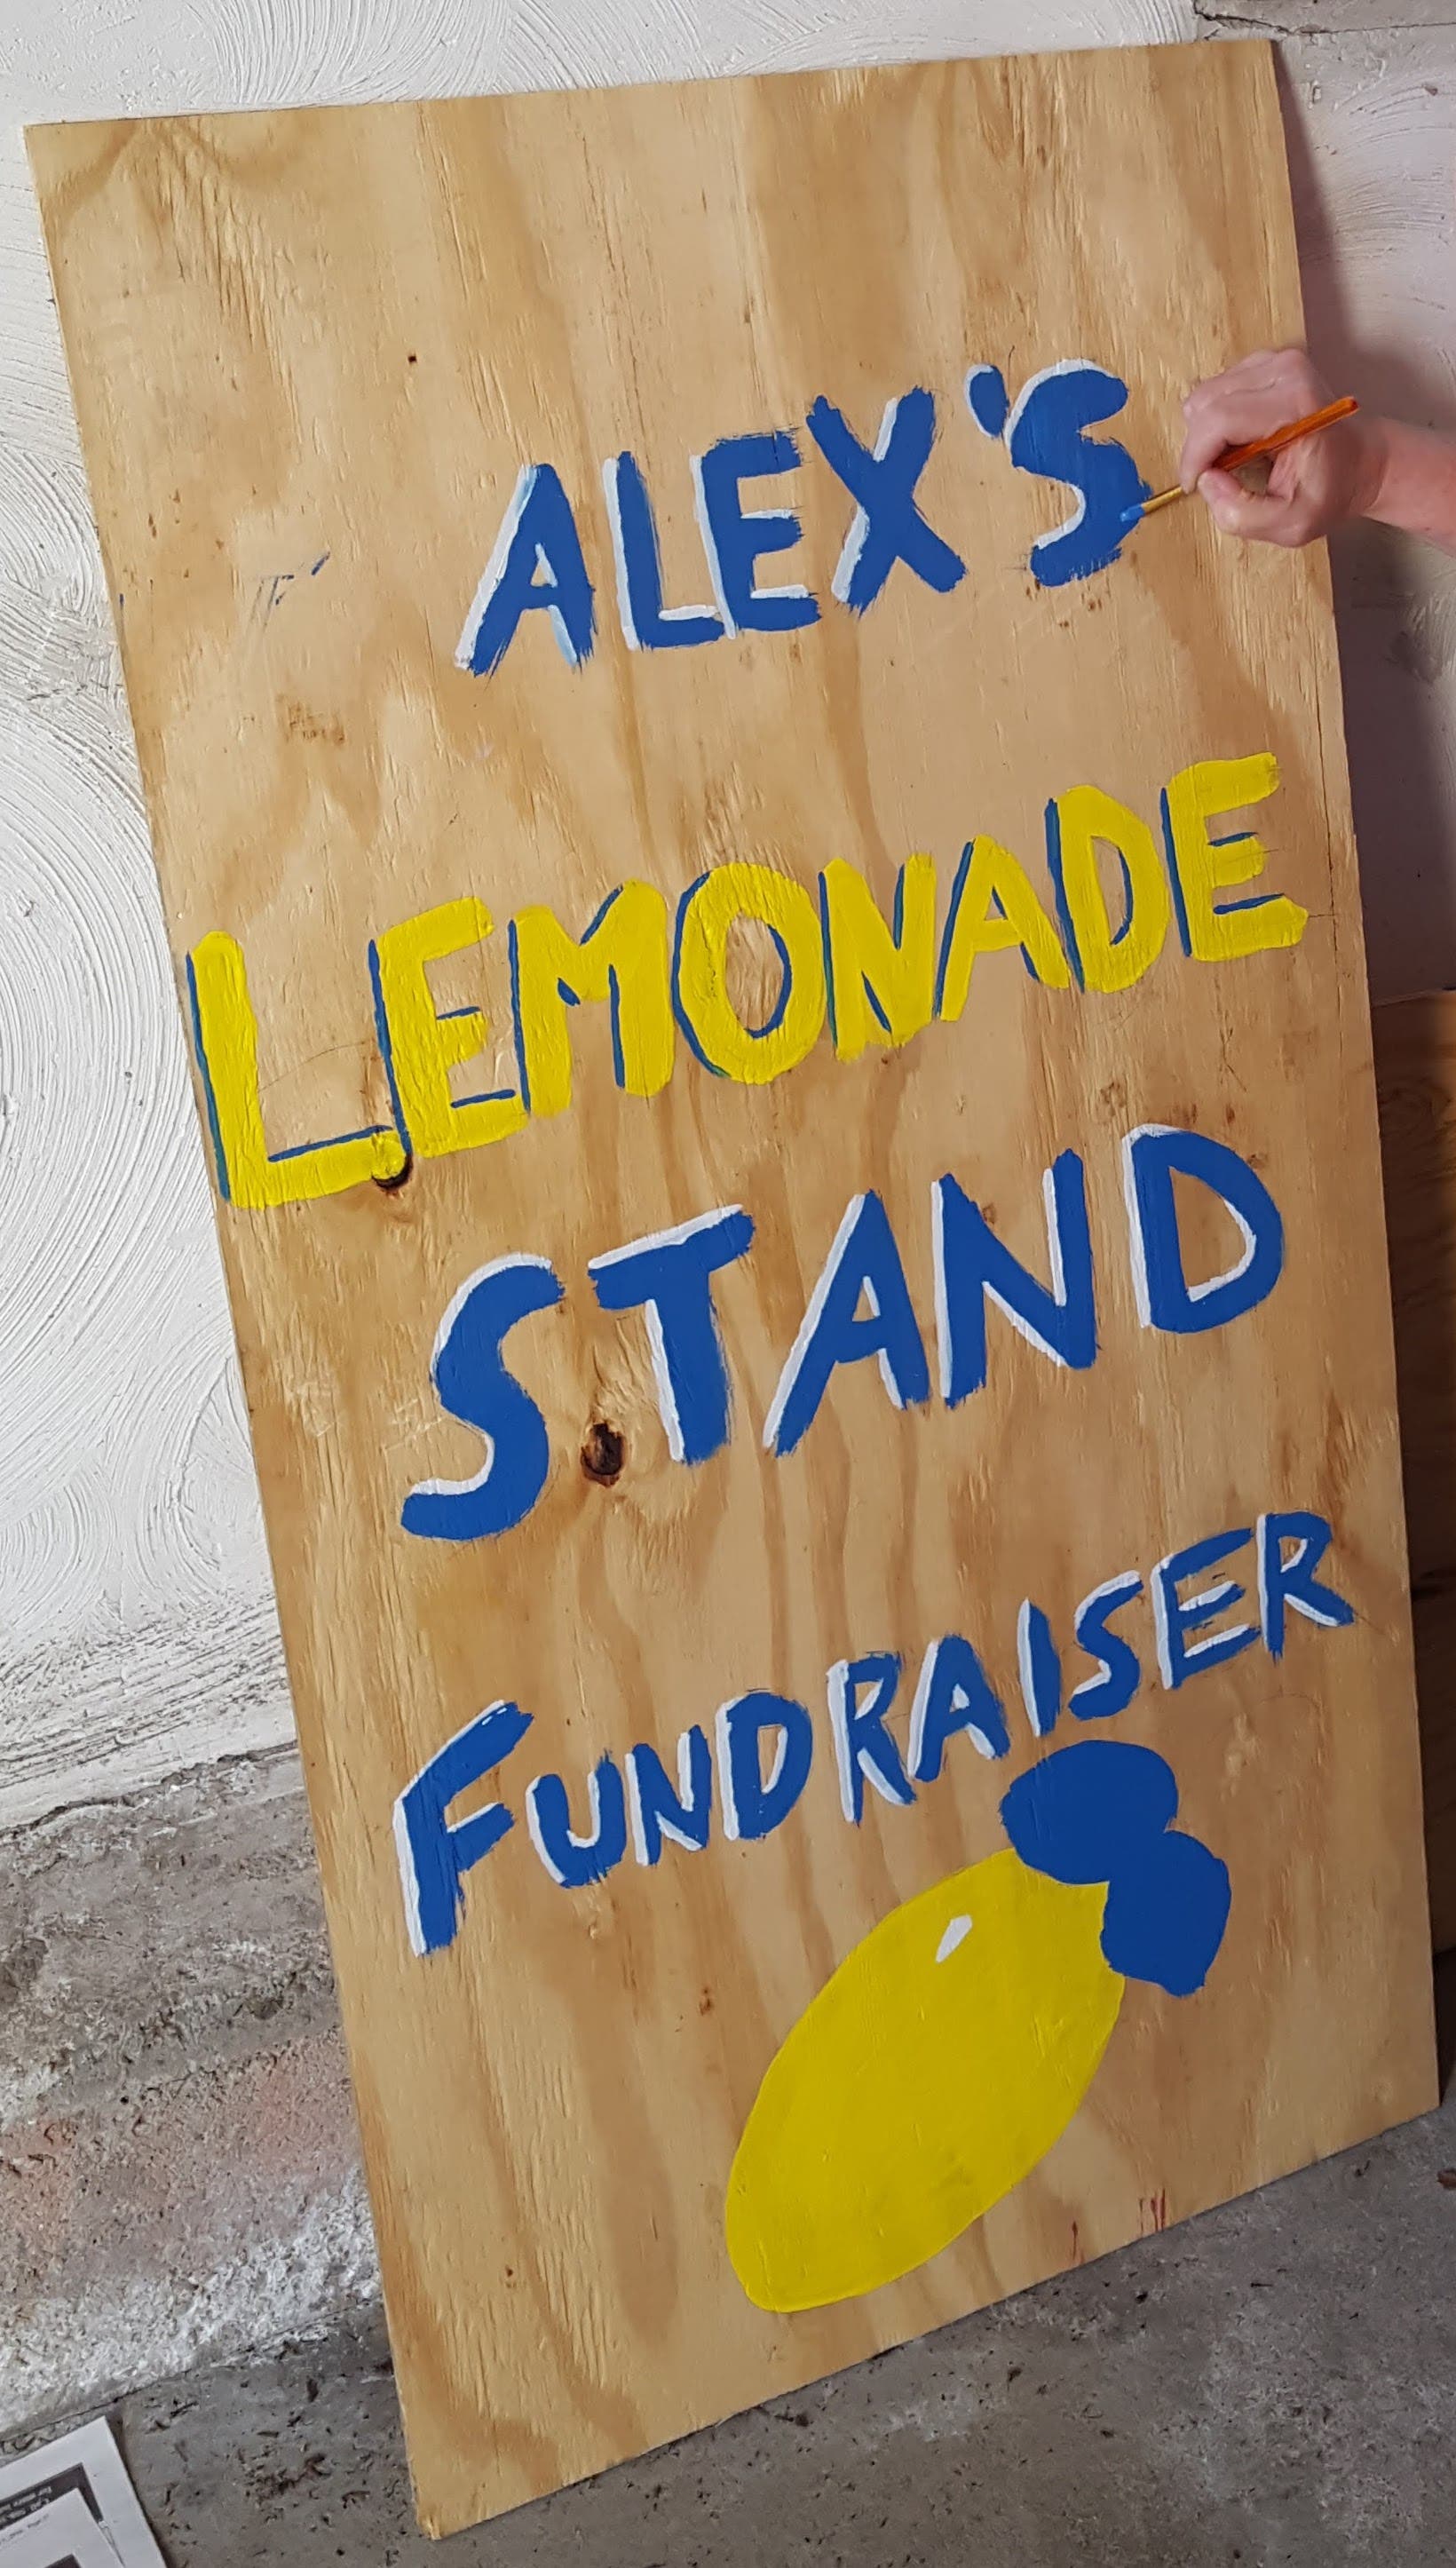 ALEX'S
LEMONADE
STAND
FUNDRAISER